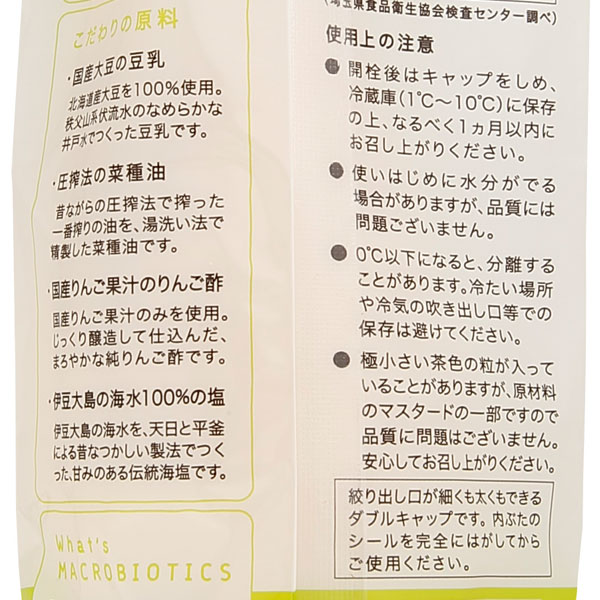 こだわりの原料
・国産大豆の豆乳
北海道産大豆を100%使用。
秩父山系伏流水のなめらかな
井戸水でつくった豆乳です。
・圧搾法の菜種油
昔ながらの圧搾法で搾った
一番搾りの油を、湯洗い法で
精製した菜種油です。
・国産りんご果汁のりんご酢
国産りんご果汁のみを使用。
じっくり醸造して仕込んだ、
まろやかな純りんご酢です。
・伊豆大島の海水100%の塩
伊豆大島の海水を、天日と平釜
による昔なつかしい製法でつく
った、甘みのある伝統海塩です。
What's
MACROBIOTICS
(埼玉県食品衛生協会検査センター調べ)
使用上の注意
● 開栓後はキャップをしめ、
冷蔵庫(1℃〜10℃)に保存
の上、なるべく1ヵ月以内に
お召し上がりください。
● 使いはじめに水分がでる
場合がありますが、品質には
問題ございません。
● 0℃以下になると、分離する
ことがあります。冷たい場所
や冷気の吹き出し口等での
保存は避けてください。
● 極小さい茶色の粒が入って
いることがありますが、原材料
のマスタードの一部ですので
品質に問題はございません。
安心してお召し上がりください。
絞り出し口が細くも太くもできる
ダブルキャップです。内ぶたの
シールを完全にはがしてから
ご使用ください。